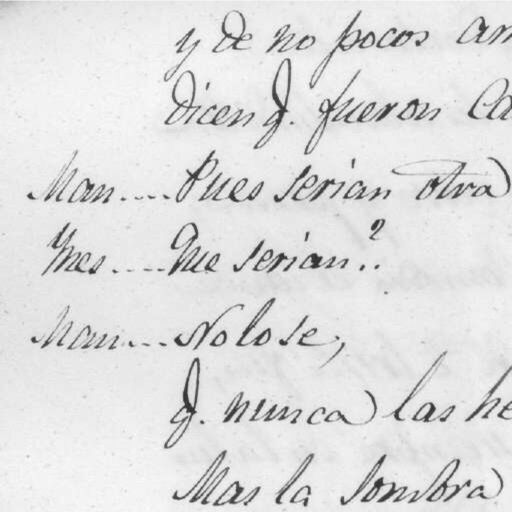 y de no pocos am
dicen q. fueron Ca
Man.... Pues serian otra
Ynes.... Que serian.?
Man.... No lo se,
q. nunca las he
Mas la sombra